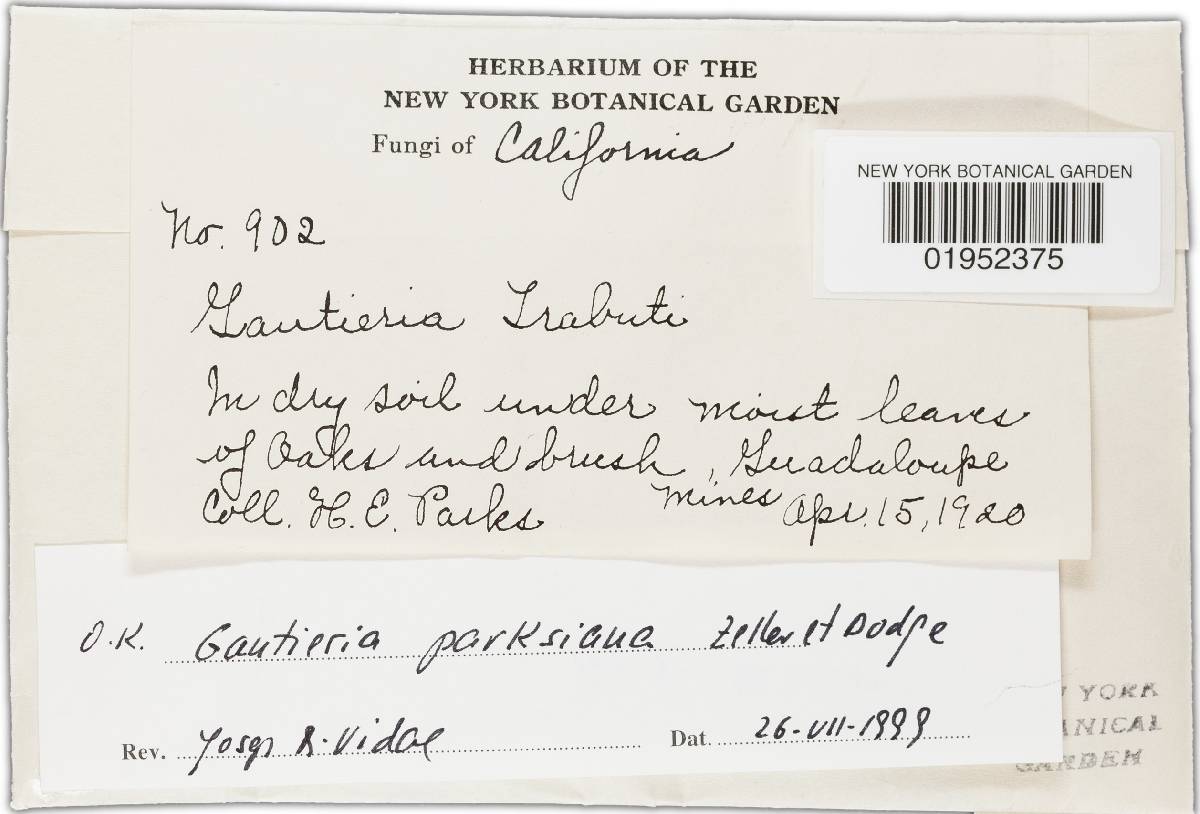 HERBARIUM OF THE
NEW YORK BOTANICAL GARDEN
Fungi of California
NEW YORK BOTANICAL GARDEN
01952375
No. 902
Gautieria Trabuti
In dry soil under moist leaves
of Oaks and brush, Guadaloupe
Mines
Coll. H. E. Parks Apr. 15, 1920
O.K. Gautieria parksiana Zeller et Dodge
Rev. Josep M. Vidal Dat. 26-VII-1999
YORK
ANICAL
GARDEN